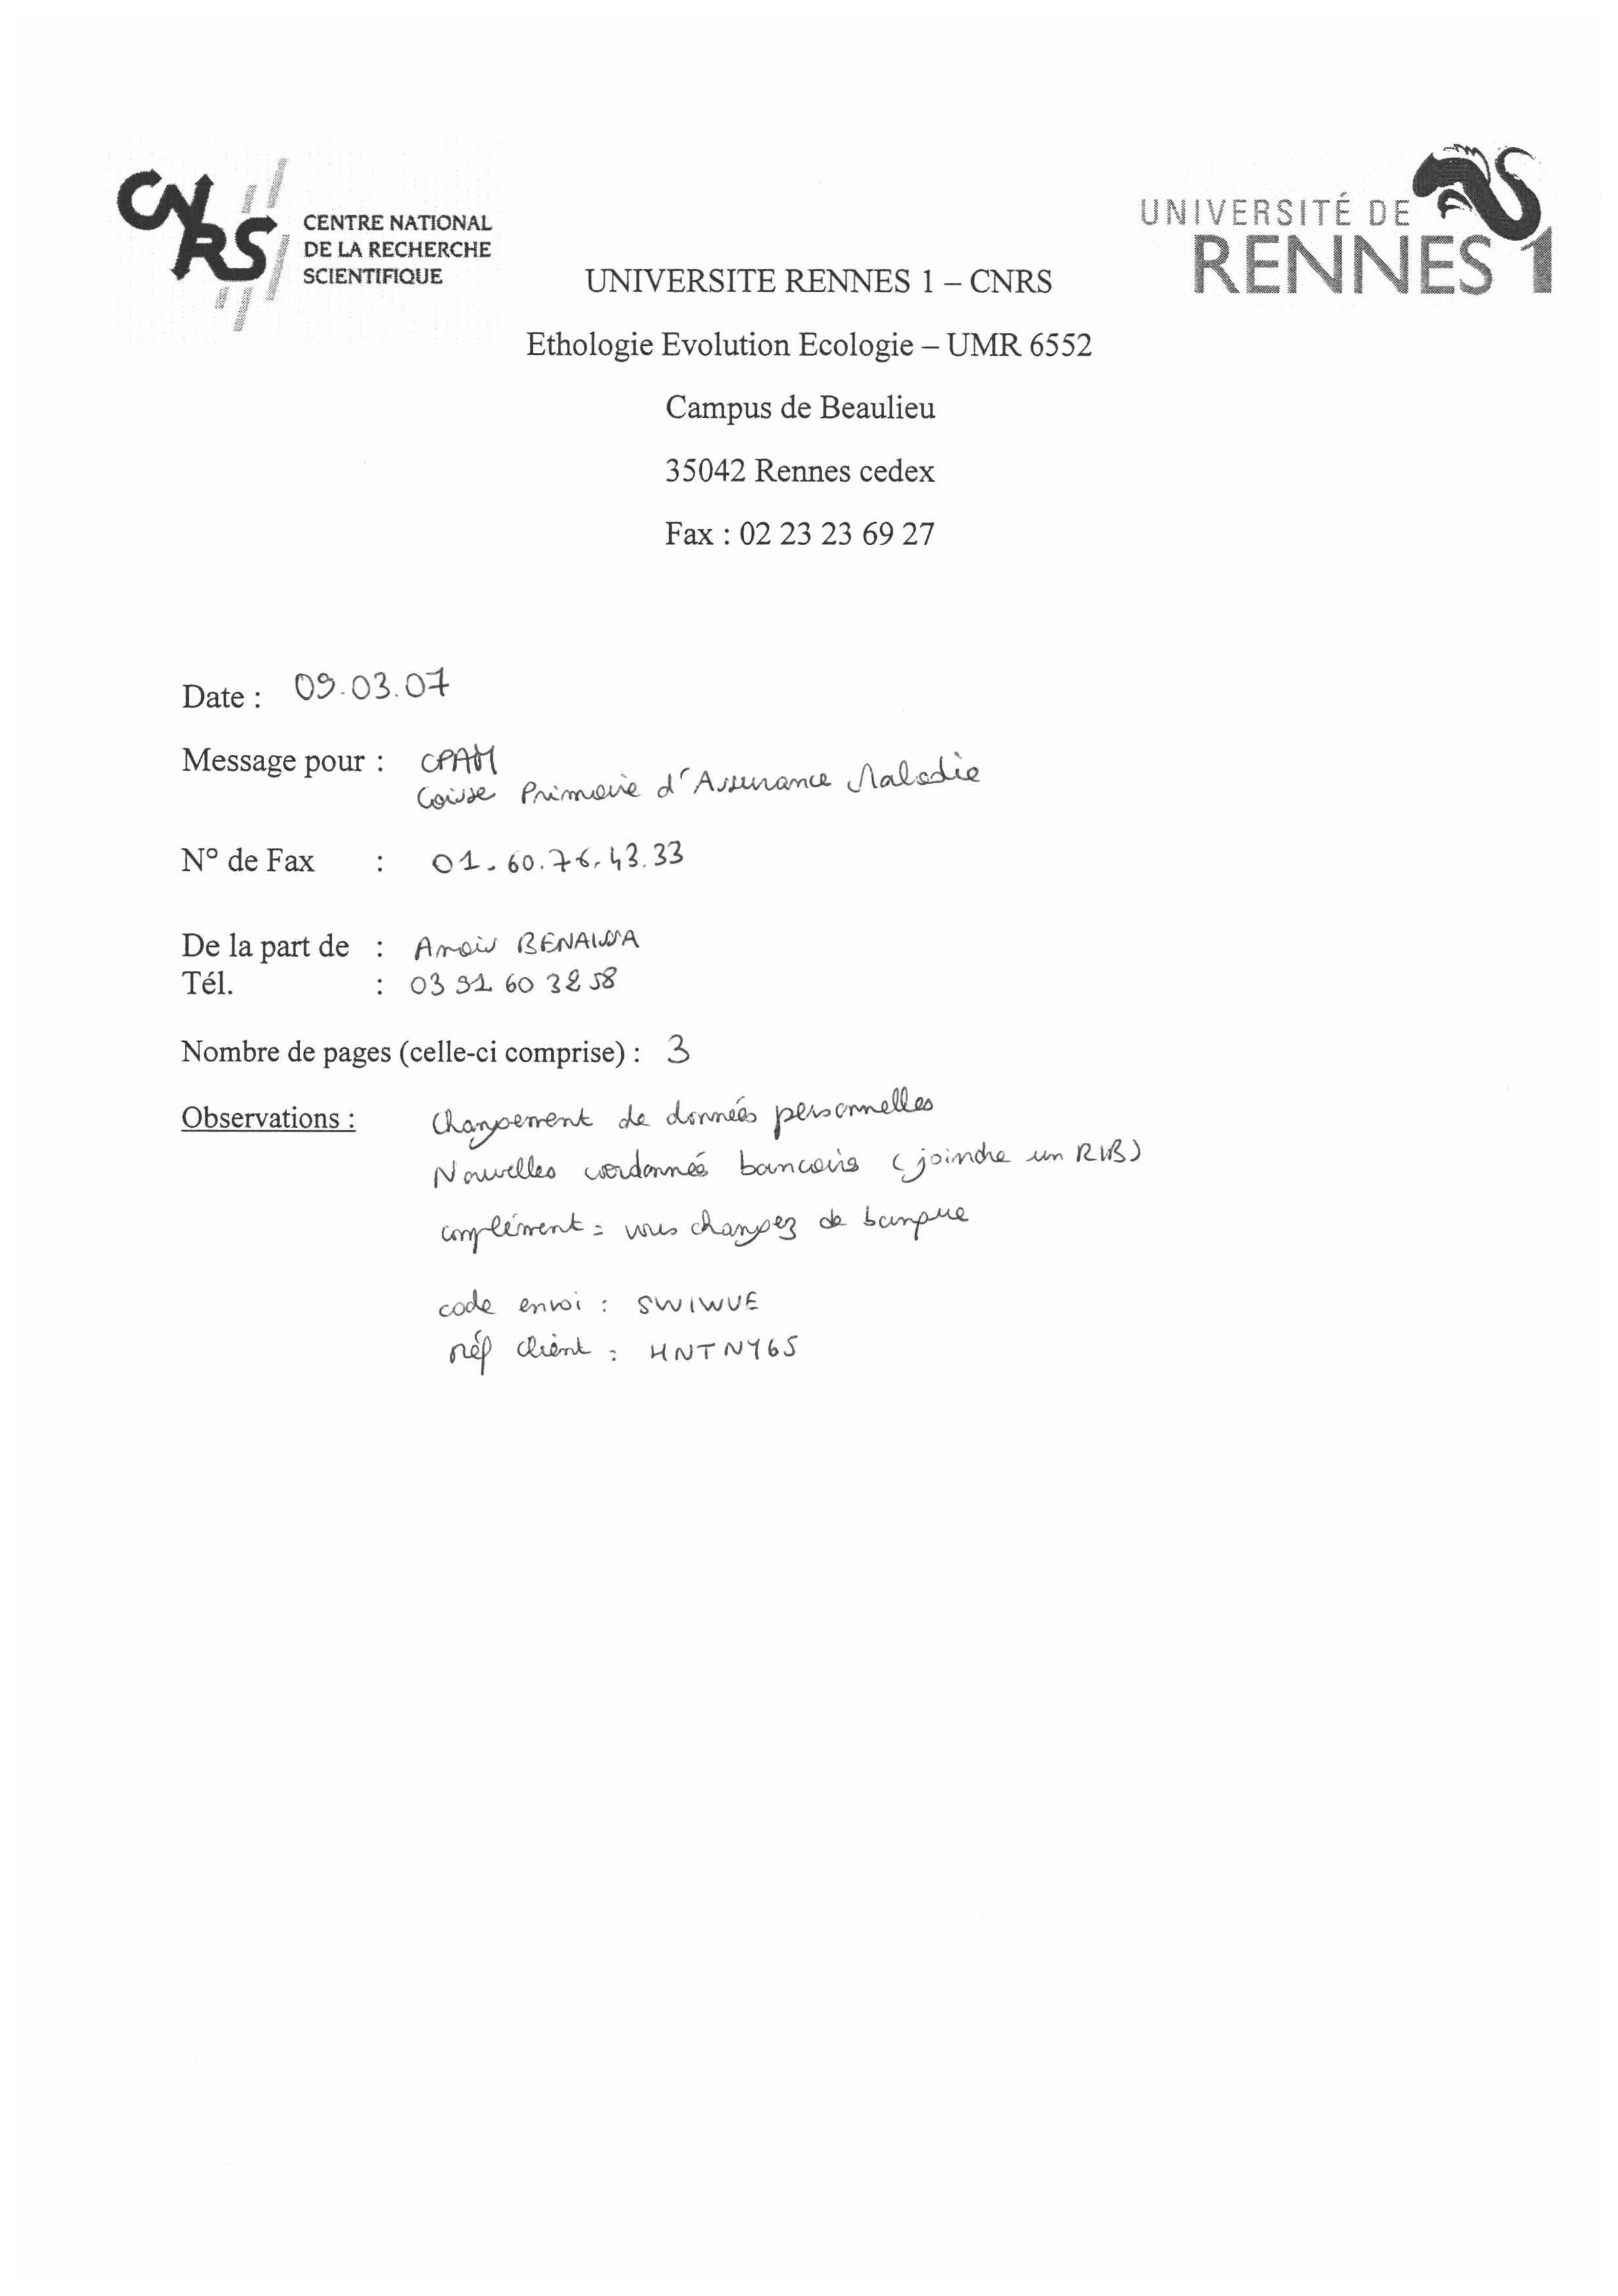 CNRS
CENTRE NATIONAL
DE LA RECHERCHE
SCIENTIFIQUE
UNIVERSITÉ DE
RENNES 1
UNIVERSITE RENNES 1 – CNRS
Ethologie Evolution Ecologie – UMR 6552
Campus de Beaulieu
35042 Rennes cedex
Fax : 02 23 23 69 27
Date : 09.03.07
Message pour : CPAM
Caisse Primaire d'Assurance Maladie
N° de Fax : 01.60.76.43.33
De la part de : Anais BENAISSA
Tél. : 03 91 60 32 58
Nombre de pages (celle-ci comprise) : 3
Observations : Changement de données personnelles
Nouvelles cordonnés bancaires (joindre un RIB)
complément = vous changez de banque
code envoi : SWIWUE
réf client : HNTNY65